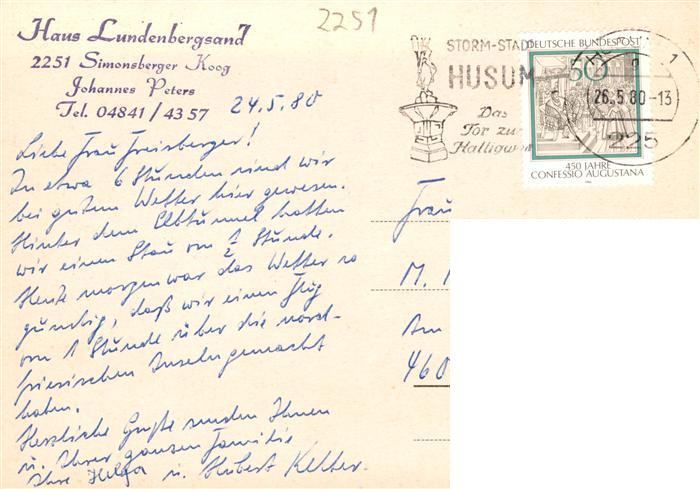 2251
Haus Lundenbergsand
2251 Simonsberger Koog
Johannes Peters
Tel. 04841/4357
24.5.80
Liebe Frau Freisberger!
In etwa 6 Stunden sind wir
bei gutem Wetter hier gewesen.
Hinter dem Elbtunnel hatten
wir einen Stau von ½ Stunde.
Heute morgen war das Wetter so
günstig, daß wir einen Flug
von 1 Stunde über die nord-
friesischen Inseln gemacht
haben.
Herzliche Grüße senden Ihnen
u. Ihrer ganzen Familie
Ihre Helga u. Hubert
STORM-STADT
HUSUM
Das
Tor zur
Halligwelt
DEUTSCHE BUNDESPOST
50
450 JAHRE
CONFESSIO AUGUSTANA
HUSUM 1
26.5.80-13
225
Frau
M.
Am
460